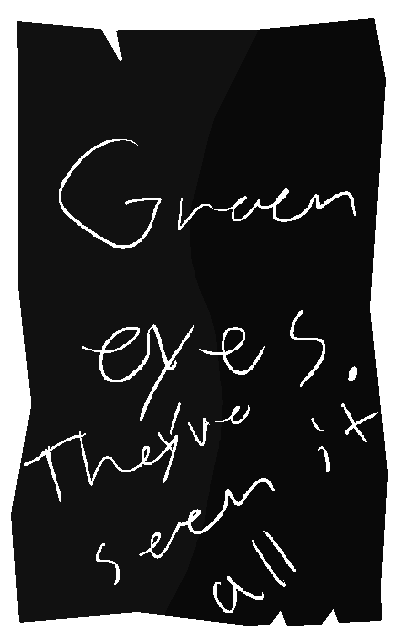 Green
eyes.
They've it
seen
all